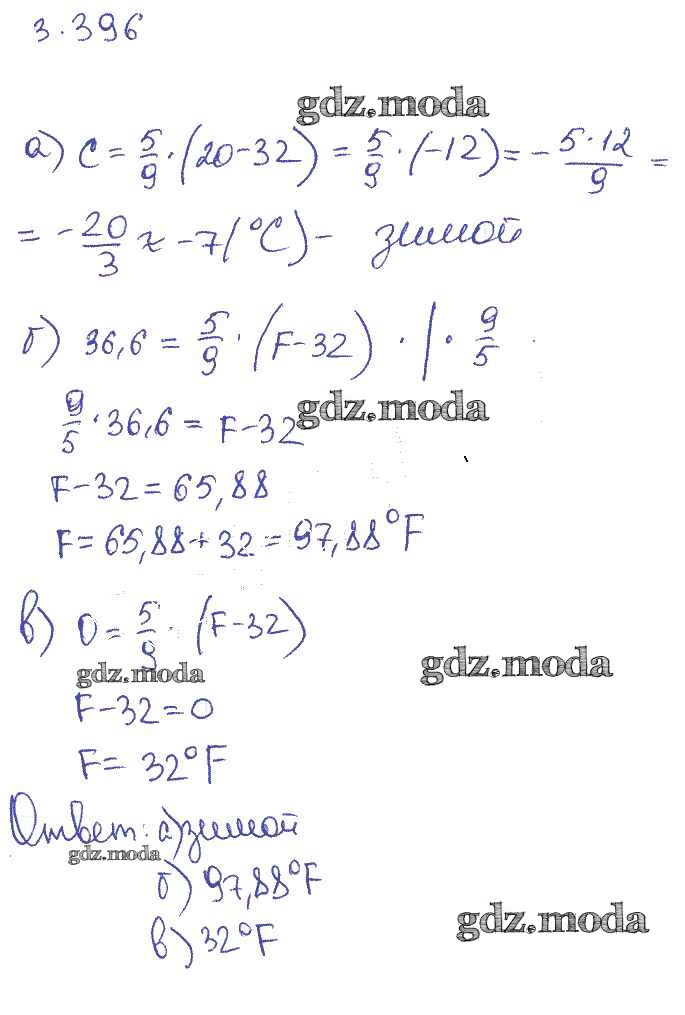 3.396
gdz.moda
а) C = 5/9 · (20-32) = 5/9 · (-12) = - 5·12/9 =
= - 20/3 ≈ -7 (°C) - зимой
б) 36,6 = 5/9 · (F-32) · | · 9/5
gdz.moda
9/5 · 36,6 = F-32
F-32 = 65,88
F = 65,88 + 32 = 97,88°F
в) 0 = 5/9 · (F-32)
gdz.moda
gdz.moda
F-32 = 0
F = 32°F
Ответ: а) зимой
gdz.moda
б) 97,88°F
gdz.moda
в) 32°F